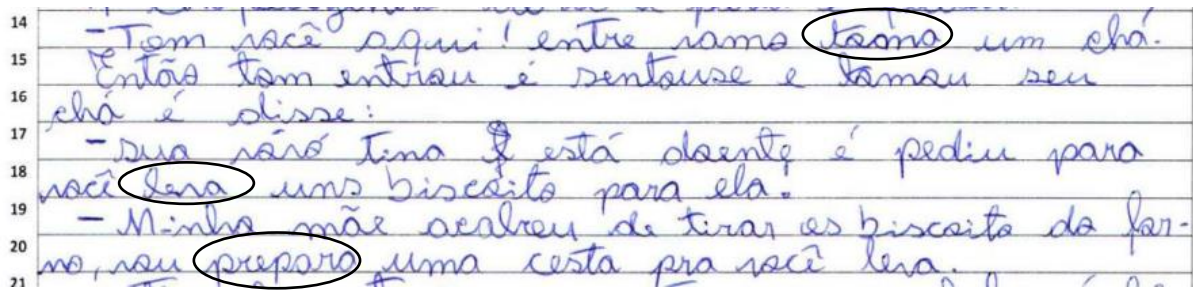 14
-Tom você aqui! entre vamo toma um chá.
15
Então tom entrou é sentouse e tomou seu
16
chá é disse:
17
-sua vóvó Tina está doente é pediu para
18
você leva uns biscoito para ela.
19
-Minha mãe acabou de tirar os biscoito do for-
20
no, vou prepara uma cesta pra você leva.
21